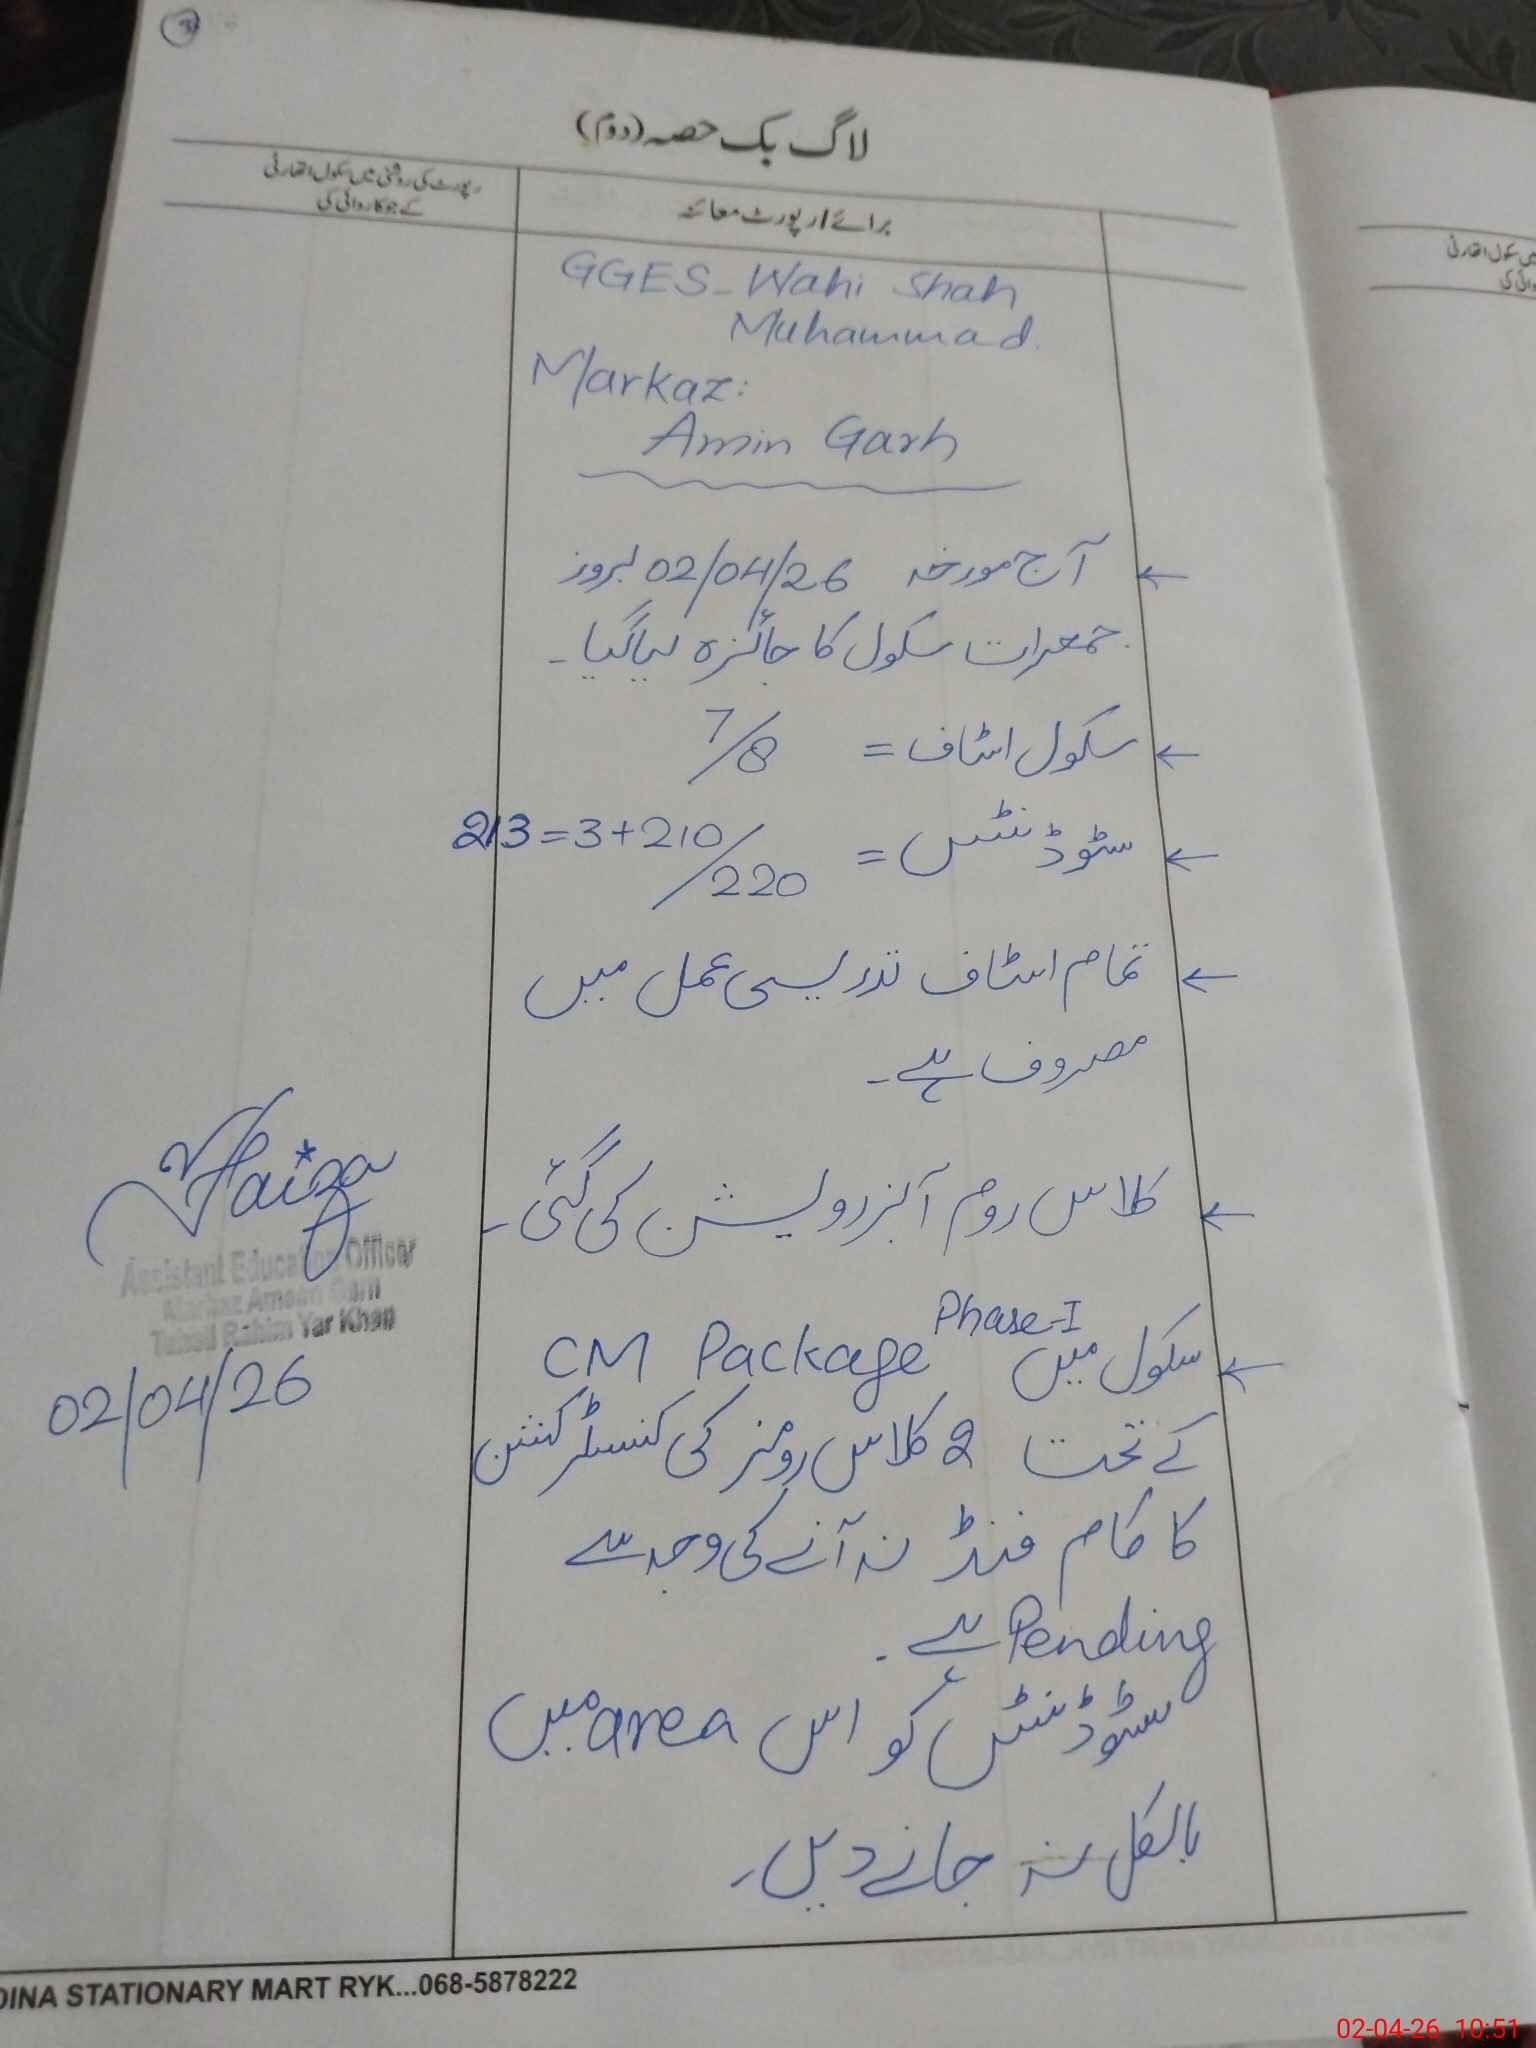 3
لاگ بک حصہ (دوم)
رپورٹ کی روشنی میں سکول اتھارٹی
کے جو کاروائی کی
برائے / رپورٹ معائنہ
GGES - Wahi Shah
Muhammad.
Markaz:
Amin Garh
← آج مورخہ 02/04/26 بروز
جمعرات سکول کا جائزہ لیا گیا۔
← سکول اسٹاف = 7/8
← سٹوڈنٹس = 213 = 3 + 210/220
← تمام اسٹاف تدریسی عمل میں
مصروف ہے۔
← کلاس روم آبزرویشن کی گئی۔
← سکول میں CM Package Phase-I
کے تحت 2 کلاس رومز کی کنسٹرکشن
کا کام فنڈ نہ آنے کی وجہ سے
Pending ہے۔
سٹوڈنٹس کو اس area میں
بالکل نہ جانے دیں۔
Faiza
Assistant Education Officer
Markaz Ameen Garh
Tehsil Rahim Yar Khan
02/04/26
میں سکول اتھارٹی
DINA STATIONARY MART RYK...068-5878222
02-04-26 10:51